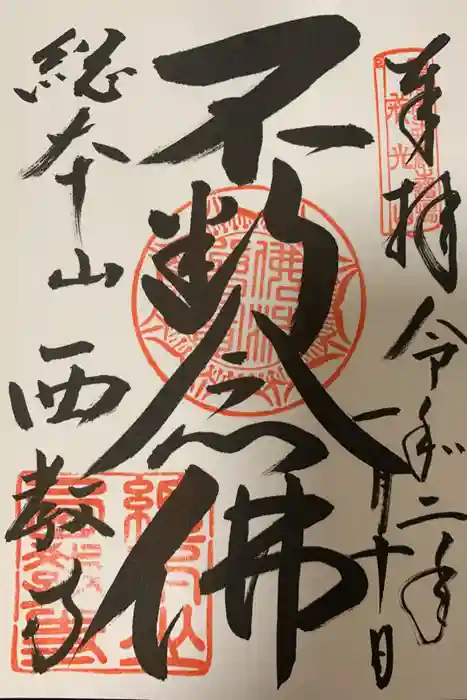 奉拝
令和二年
一月十日
不断念佛
総本山
西教寺